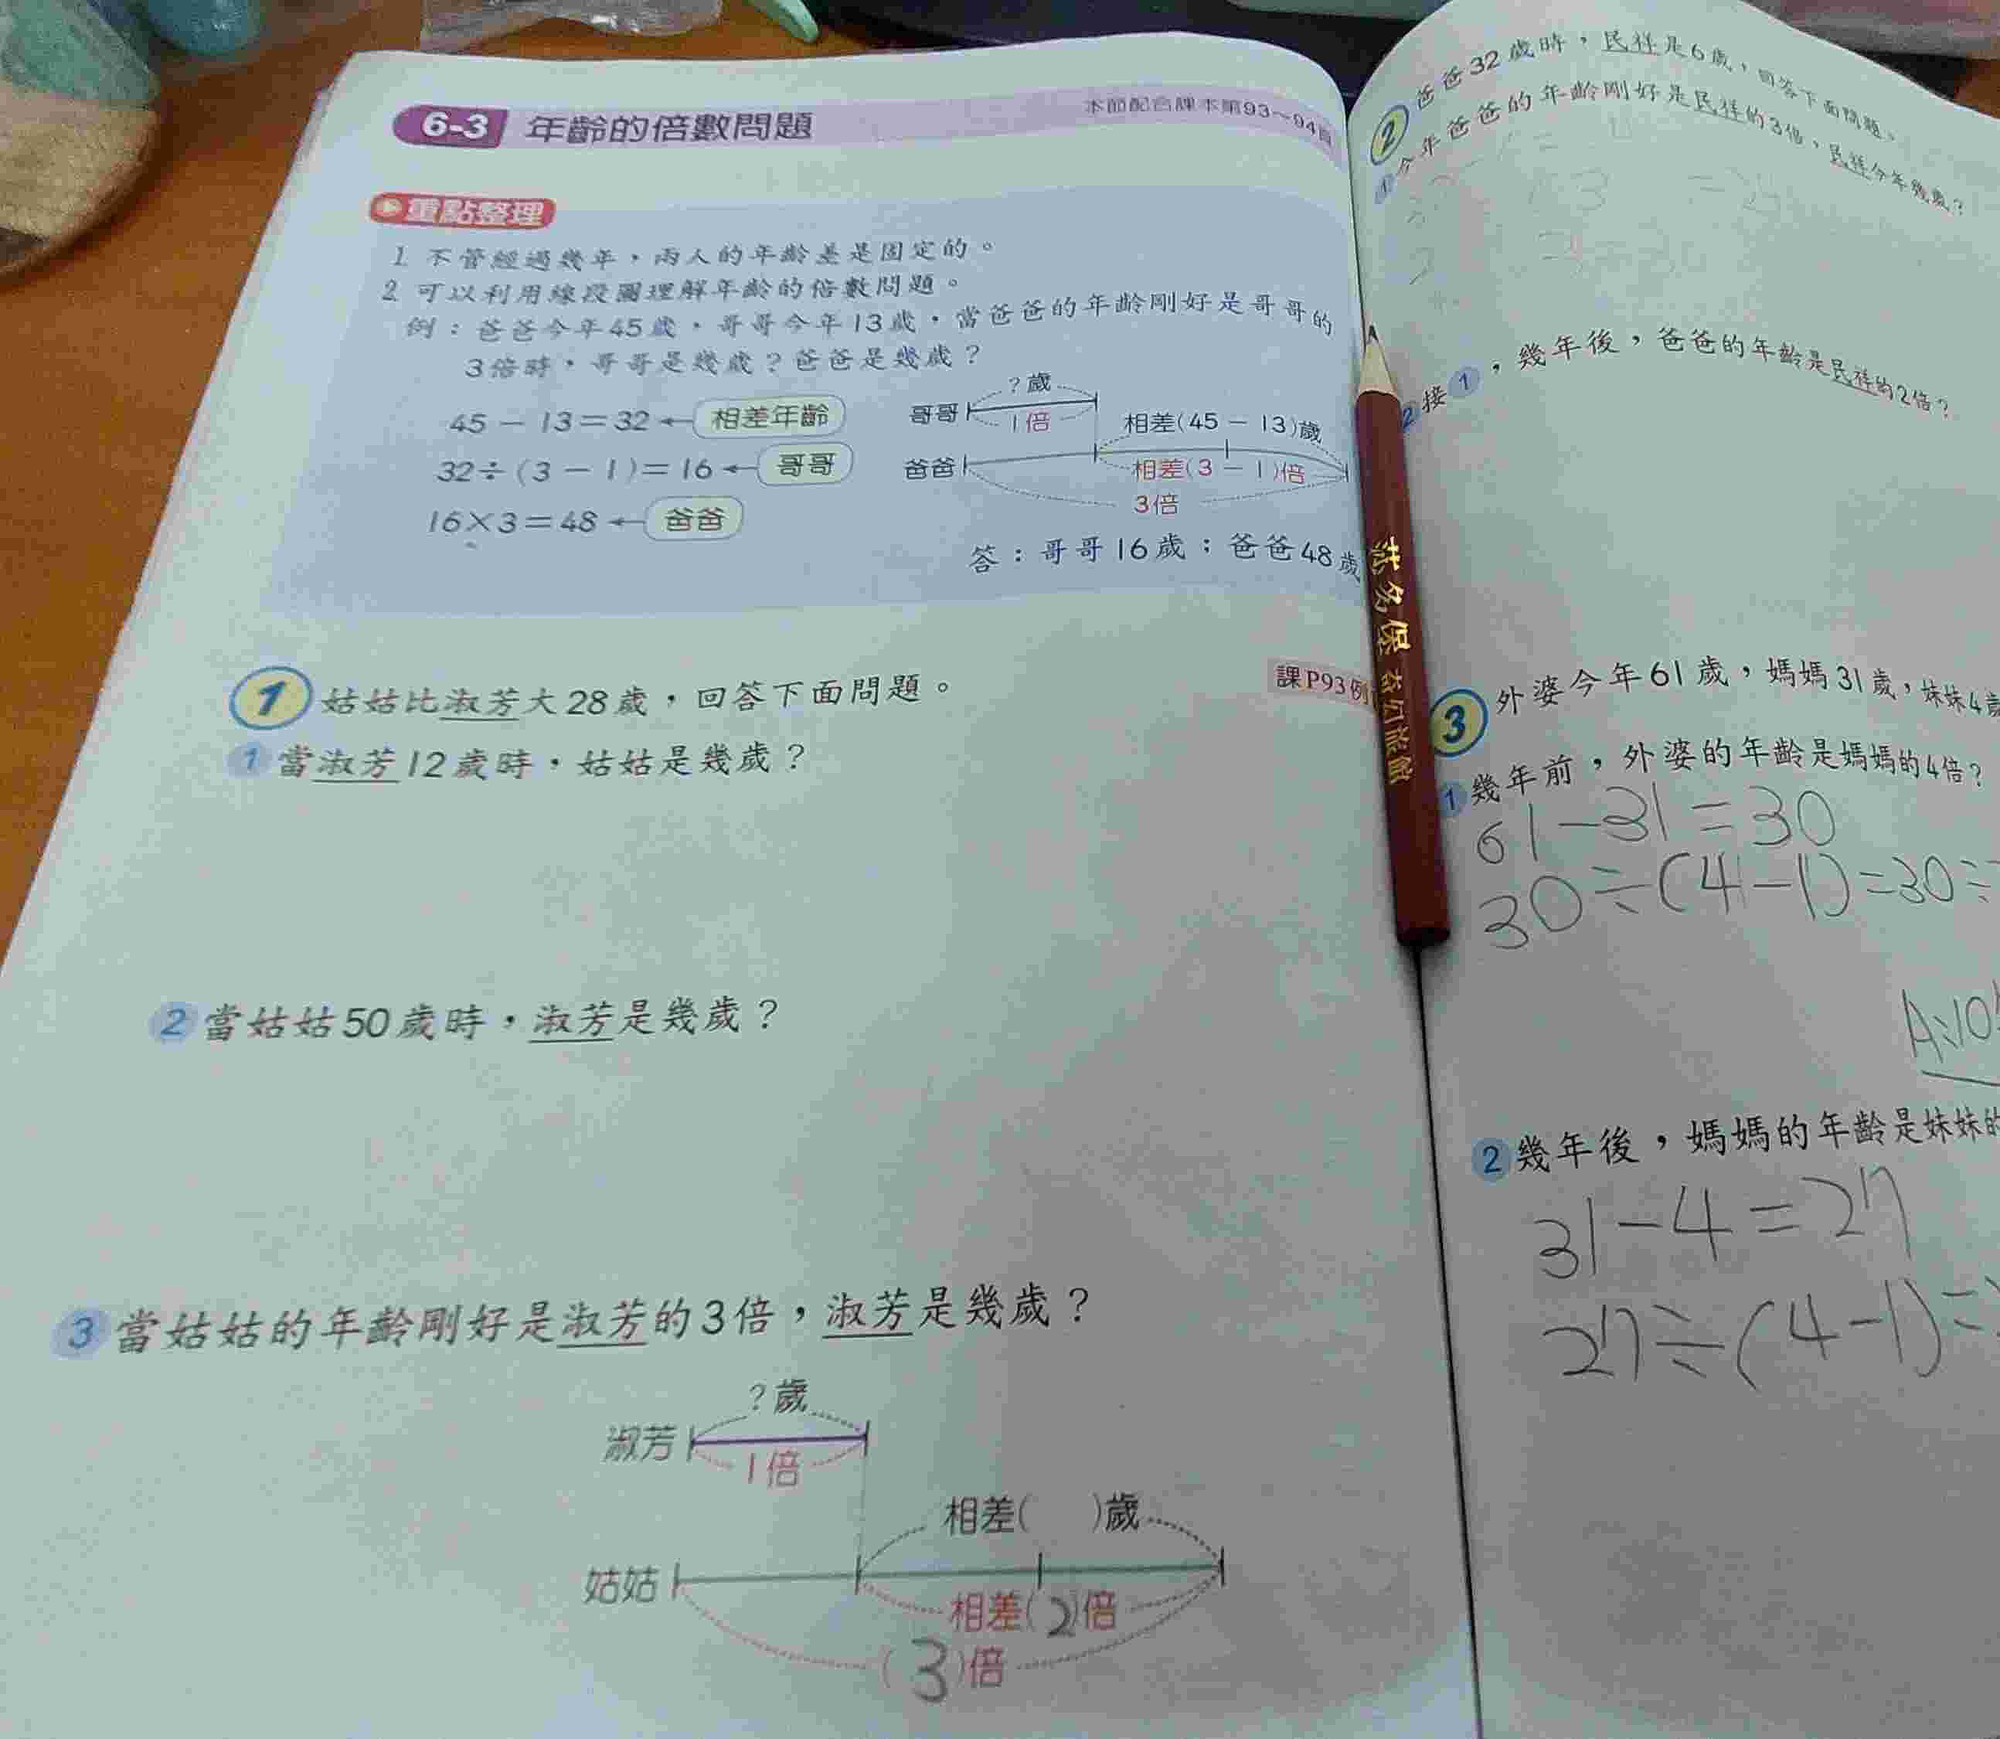 6-3 年齡的倍數問題
本節配合課本第93~94頁
重點整理
1. 不管經過幾年，兩人的年齡差是固定的。
2. 可以利用線段圖理解年齡的倍數問題。
例：爸爸今年45歲，哥哥今年13歲，當爸爸的年齡剛好是哥哥的
3倍時，哥哥是幾歲？爸爸是幾歲？
45－13＝32 ← 相差年齡
32÷(3－1)＝16 ← 哥哥
16×3＝48 ← 爸爸
?歲
哥哥
1倍
相差(45－13)歲
爸爸
相差(3－1)倍
3倍
答：哥哥16歲；爸爸48歲
1 姑姑比淑芳大28歲，回答下面問題。
課P93例
1 當淑芳12歲時，姑姑是幾歲？
2 當姑姑50歲時，淑芳是幾歲？
3 當姑姑的年齡剛好是淑芳的3倍，淑芳是幾歲？
?歲
淑芳
1倍
相差(　)歲
姑姑
相差(2)倍
(3)倍
2 爸爸32歲時，民祥是6歲，回答下面問題。
1 今年爸爸的年齡剛好是民祥的3倍，民祥今年幾歲？
2 接1，幾年後，爸爸的年齡是民祥的2倍？
3 外婆今年61歲，媽媽31歲，妹妹4歲
1 幾年前，外婆的年齡是媽媽的4倍？
61－31＝30
30÷(4－1)＝30÷
A:10
2 幾年後，媽媽的年齡是妹妹的
31－4＝27
27÷(4－1)＝